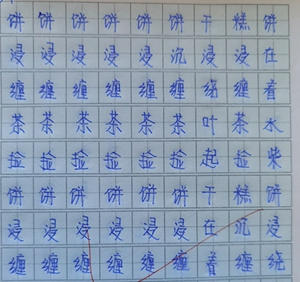 饼饼饼饼饼干糕饼
浸浸浸浸浸沉浸浸在
缠缠缠缠缠缠绕缠着
茶茶茶茶茶叶茶水
捡捡捡捡捡捡起捡柴
饼饼饼饼饼干糕饼
浸浸浸浸浸浸在沉浸
缠缠缠缠缠缠着缠绕